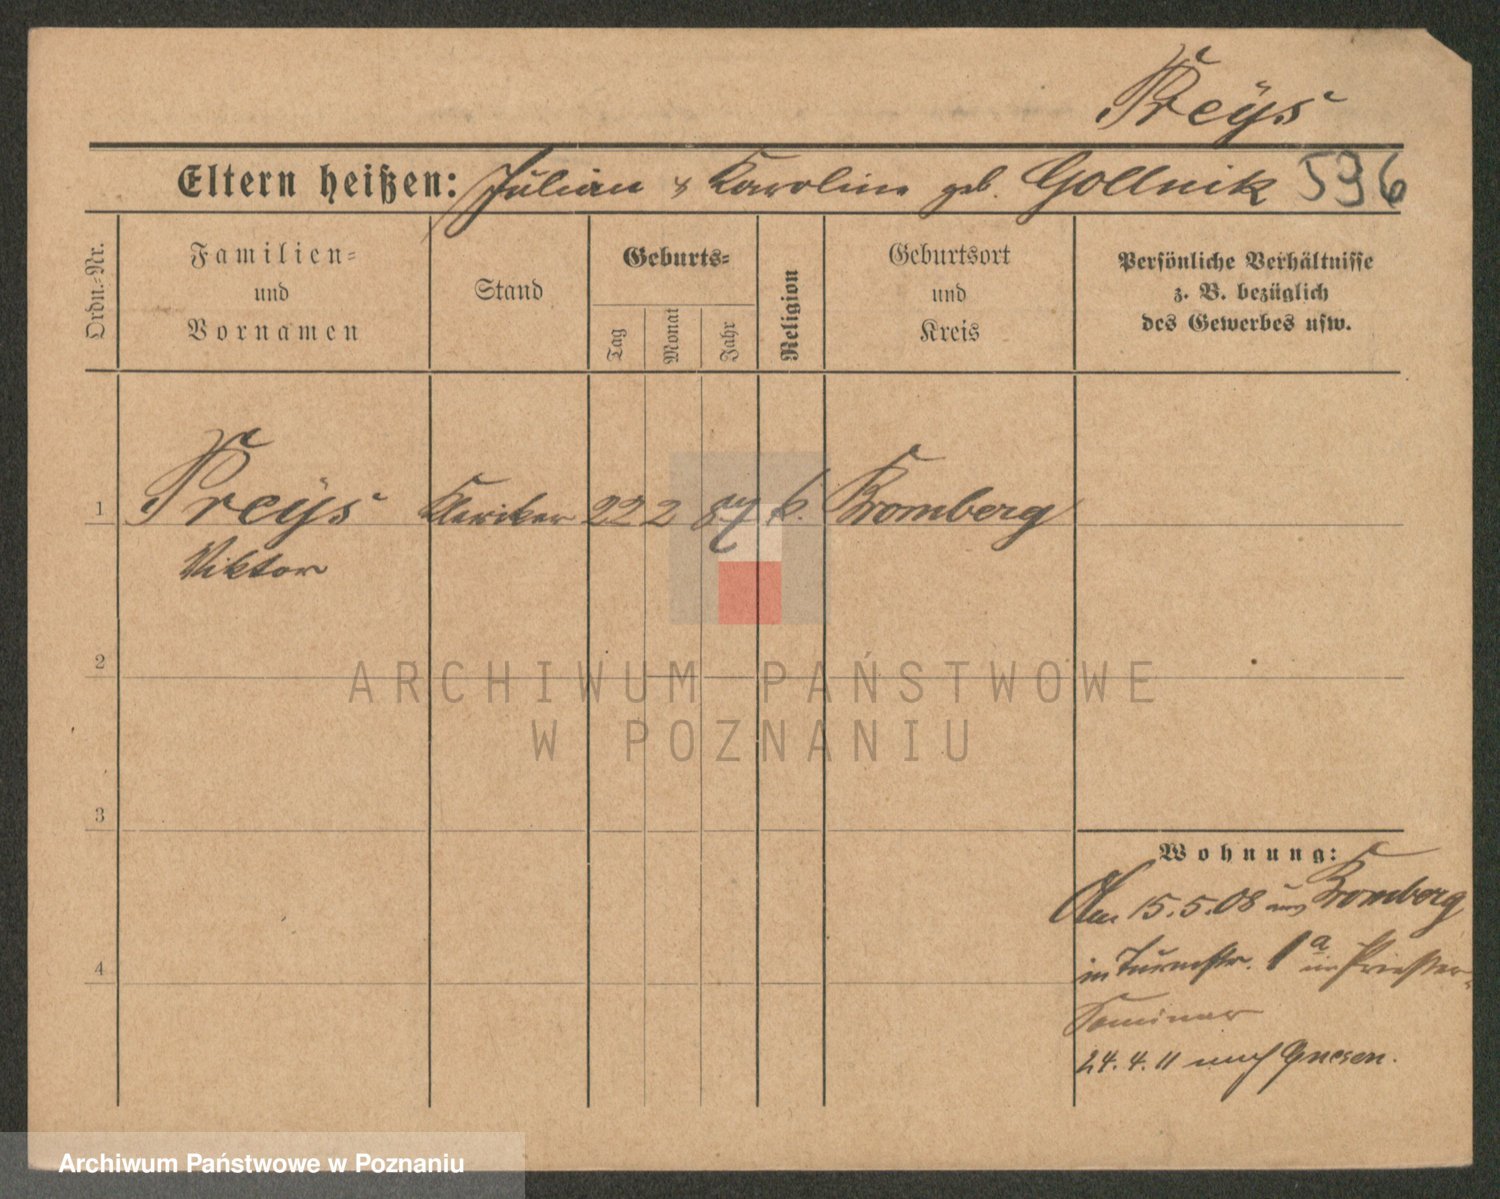 Preÿs
Eltern heißen: Julian & Karoline geb. Gollnik 596
Ordn.-Nr.
Familien-
und
Vornamen
Stand
Geburts-
Tag
Monat
Jahr
Religion
Geburtsort
und
Kreis
Persönliche Verhältnisse
z. B. bezüglich
des Gewerbes usw.
1 Preÿs Kleriker 22 2 87 k. Bromberg
Viktor
2
ARCHIWUM PAŃSTWOWE
W POZNANIU
3
Wohnung:
Am 15.5.08 aus Bromberg
in Turmstr. 1a im Priester-
Seminar
4
24.4.11 nach Gnesen.
Archiwum Państwowe w Poznaniu